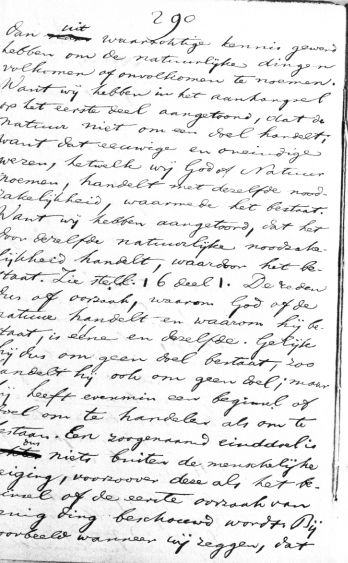 290
dan uit waarachtige kennis gewend
hebben om de natuurlijke dingen
volkomen of onvolkomen te noemen.
Want wij hebben in het aanhangsel
op het eerste deel aangetoond, dat de
natuur niet om een doel handelt;
want dat eeuwige en oneindige
wezen, hetwelk wij God of Natuur
noemen, handelt met dezelfde nood-
zakelijkheid, waarmede het bestaat.
Want wij hebben aangetoond, dat het
door dezelfde natuurlijke noodzake-
lijkheid handelt, waardoor het be-
staat. Zie stell. 16 deel 1. De reden
dus of oorzaak, waarom God of de
natuur handelt en waarom hij be-
staat, is ééne en dezelfde. Gelijk
hij dus om geen doel bestaat, zoo
handelt hij ook om geen doel; maar
hij heeft evenmin een beginsel of
doel om te handelen als om te
bestaan. Een zorgenaamd einddoel is
dus niets buiten de menschelijke
neiging, voorzoover deze als het be-
ginsel of de eerste oorzaak van
eenig ding beschouwd wordt. Bij
voorbeeld wanneer wij zeggen, dat